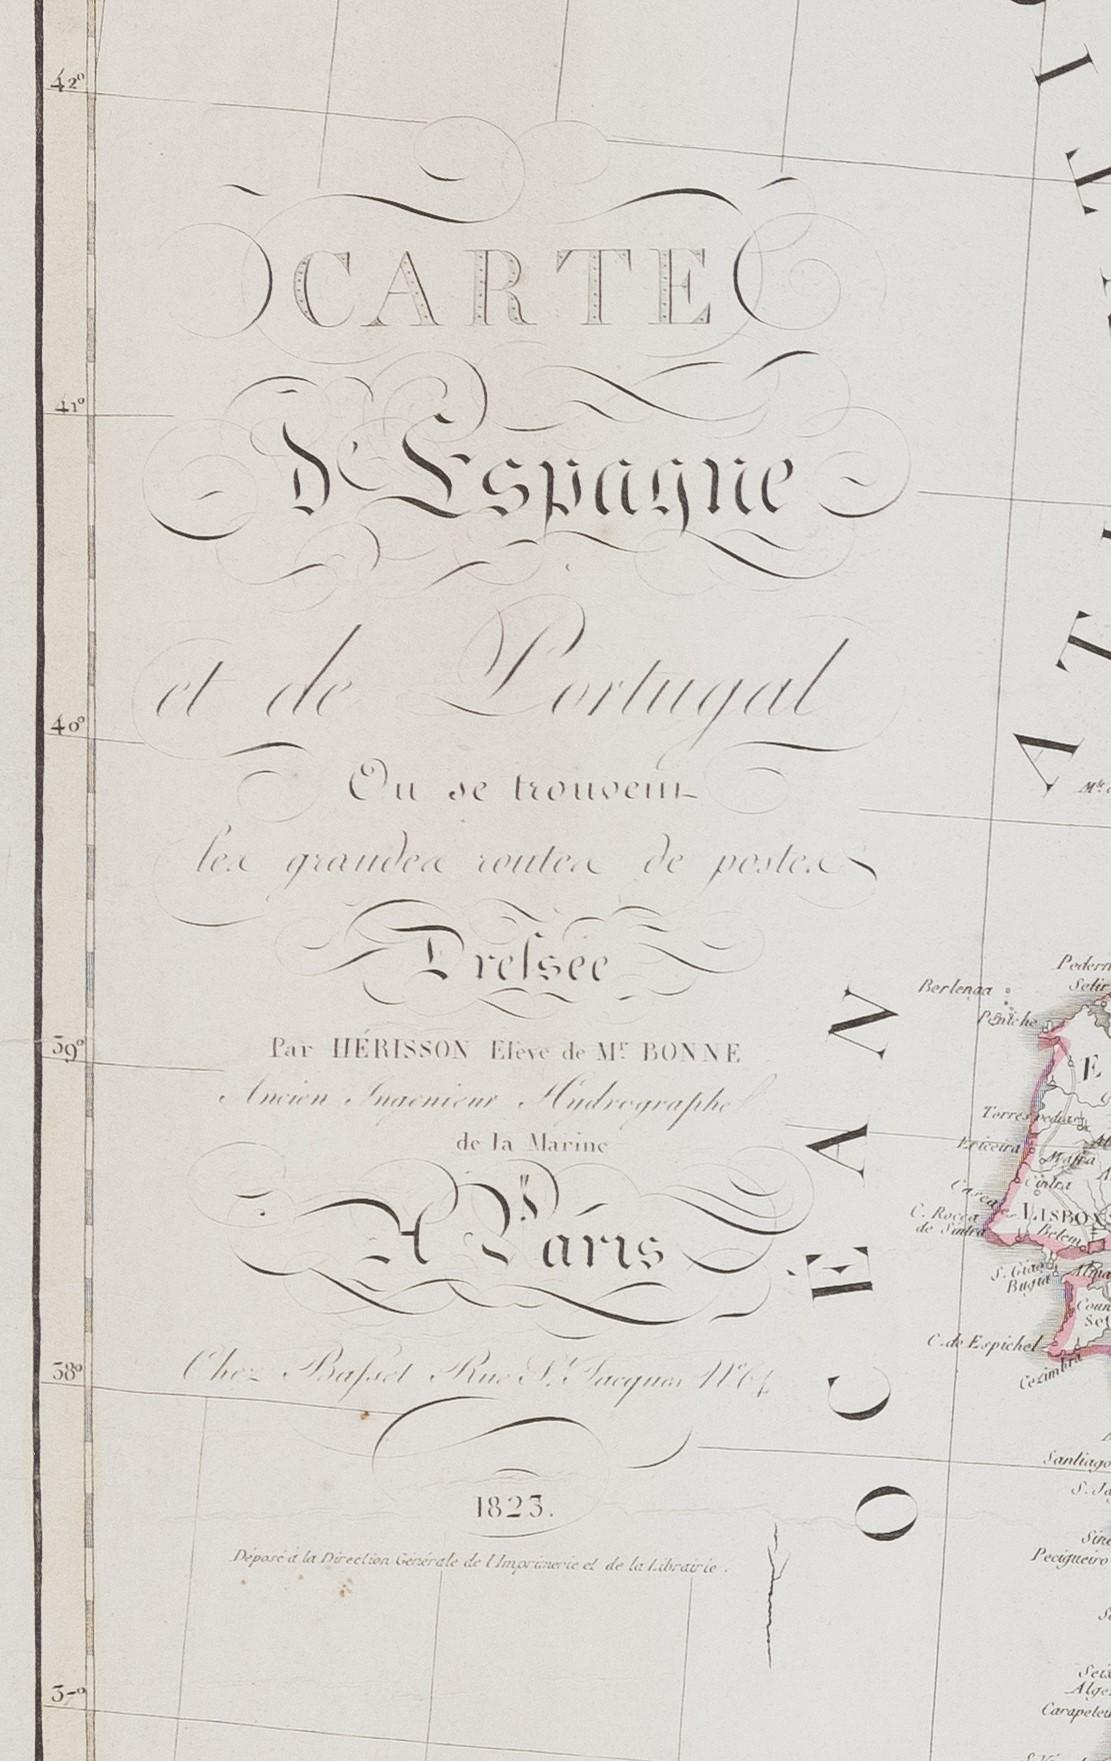 42°
41°
40°
39°
38°
37°
CARTE
d'Espagne
et de Portugal
Ou se trouvent
les grandes routes de postes
Dressée
Par HÉRISSON Elève de Mr. BONNE
Ancien Ingenieur Hydrographe
de la Marine
A Paris
Chez Basset Rue St. Jacques No. 64
1823.
Déposé à la Direction Générale de l'Imprimerie et de la Librairie.
OCÉAN
AT
Berlenga
Peniche
Torres vedras
Ericeira
Mafra
Cintra
Cascaes
C. Rocca
de Sintra
LISBO
Belem
S. Giao
Bugia
C. de Espichel
Cezimbra
Santiago
Pecigueiro